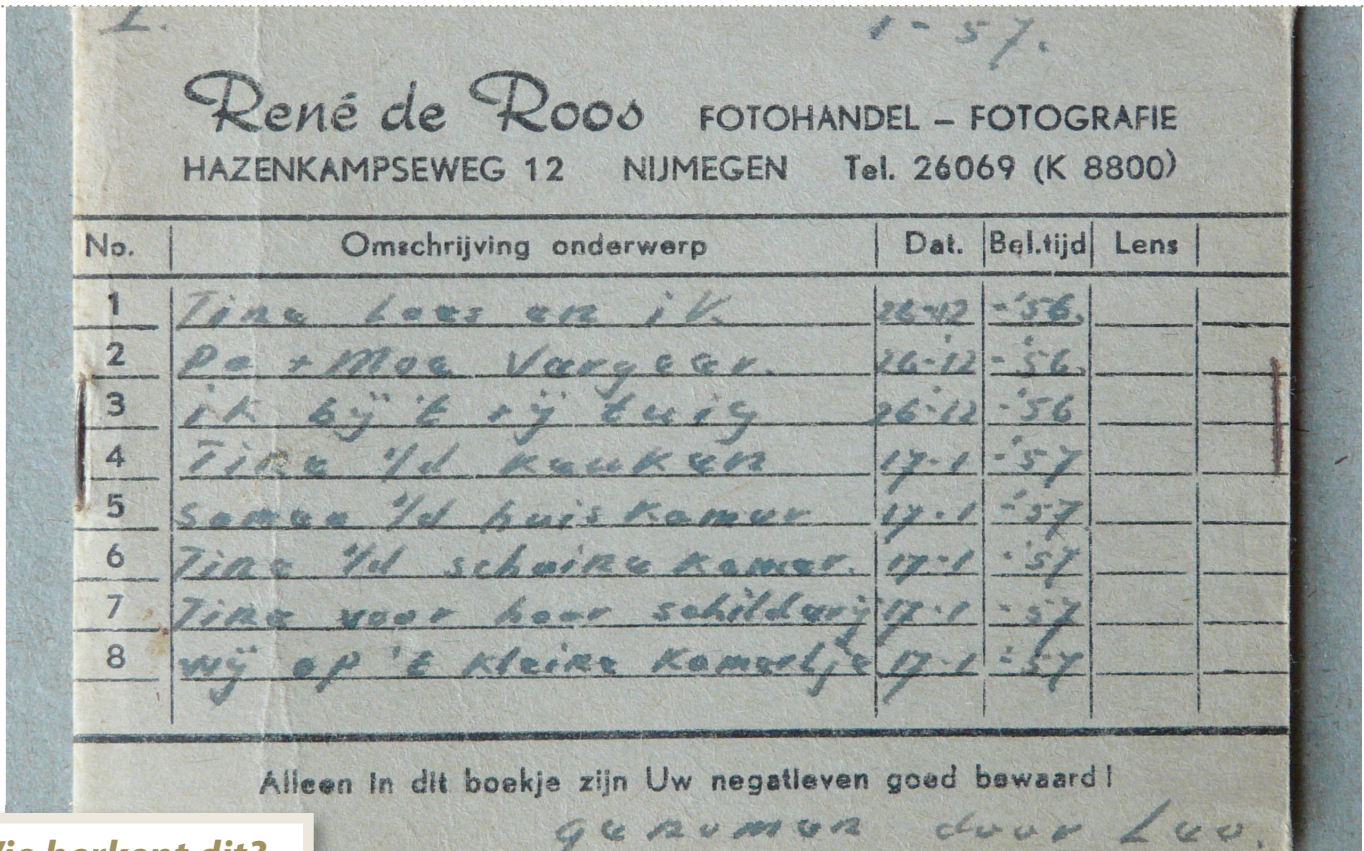 1. 1-57.
René de Roos FOTOHANDEL – FOTOGRAFIE
HAZENKAMPSEWEG 12 NIJMEGEN Tel. 26069 (K 8800)
No. Omschrijving onderwerp Dat. Bel.tijd Lens
1 Tine Loes en ik 26-12 -'56.
2 Pe + Moe Vergeer. 26-12 -'56.
3 ik bij 't rij tuig 26-12 -'56
4 Tine i/d keuken 17-1 -'57
5 samen i/d huis kamer 17-1 -'57
6 Tine i/d schuine kamer. 17-1 -'57
7 Tine voor haar schilderij 17-1 -'57
8 wij op 't kleine kamertje 17-1 -'57
Alleen in dit boekje zijn Uw negatieven goed bewaard!
genomen door Leo.
herkent dit?